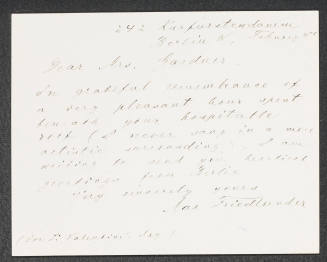 242 Kurfurstendamm
Berlin W. February 5th
Dear Mrs. Gardner
In grateful remembrance of
a very pleasant hour spent
beneath your hospitable
roof (I never sang in a more
artistic surrounding I am
writing to send you heartiest
greetings from Berlin
Very sincerely yours
Friedlander
(for St. Valentine's Day)